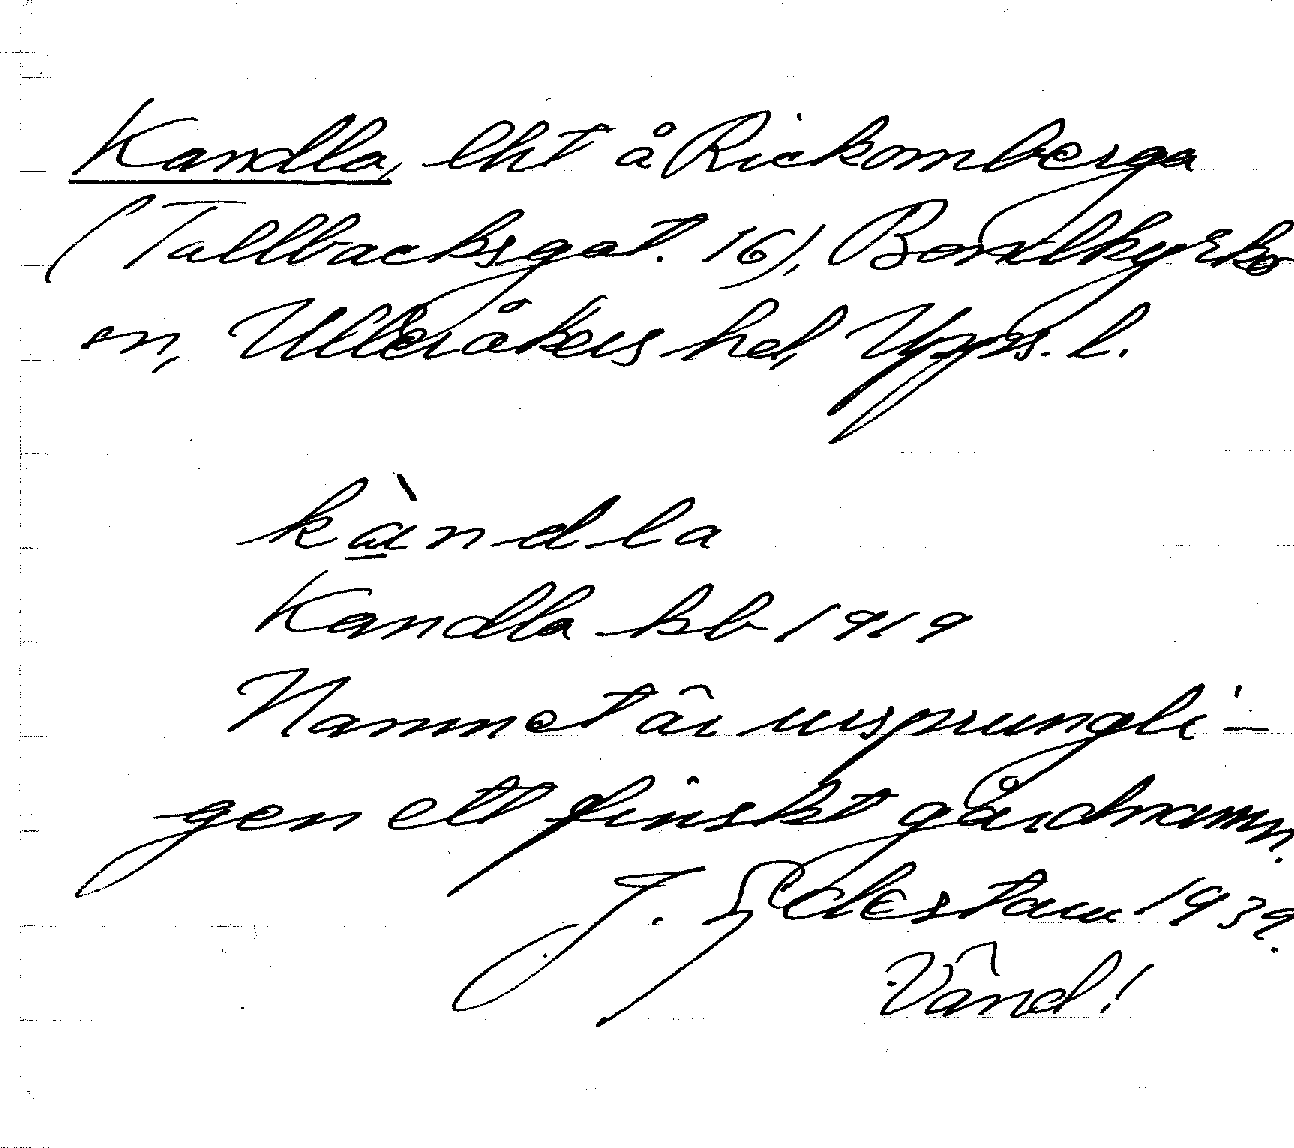 Kandla, lht å Rickomberga
(Tallbacksgat. 16), Bondkyrko
sn, Ulleråkers hd, Upps. l.
kàndla
Kandla kb 1919
Namnet är ursprungli-
gen ett finskt gårdnamn.
J. 1939.
Vänd!